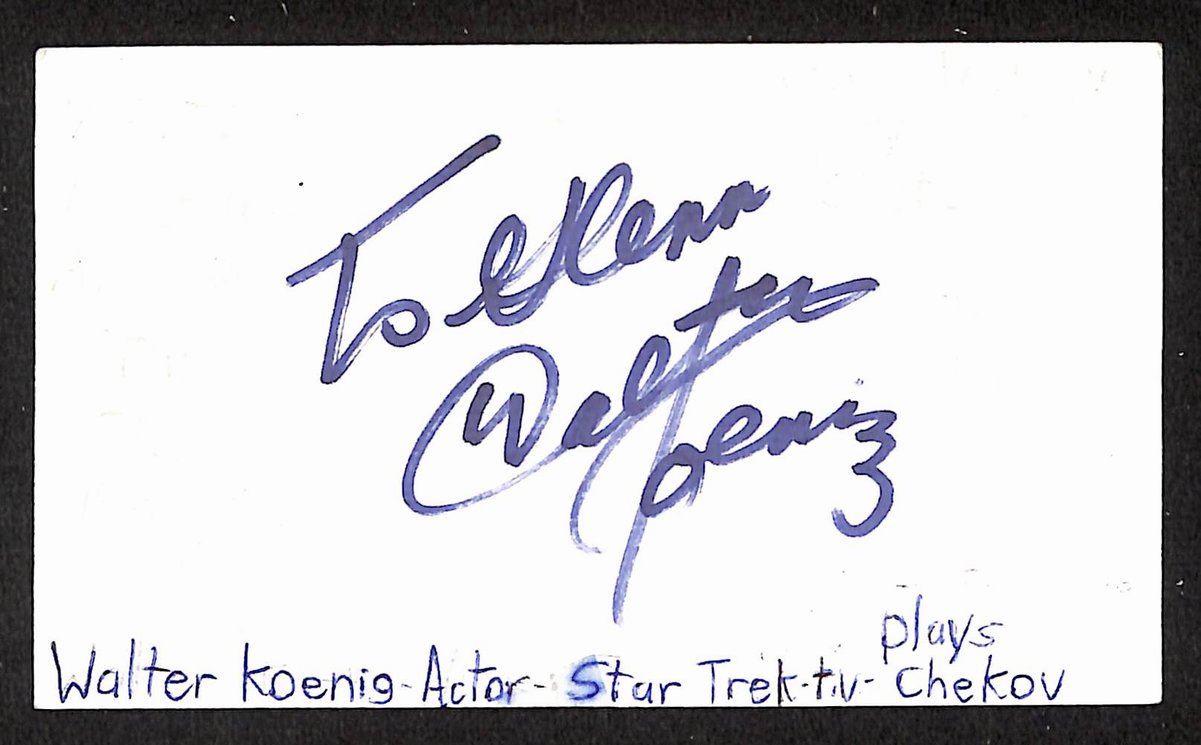 To Glenn
Walter Koenig
plays
Walter Koenig-Actor-Star Trek-t.v-Chekov